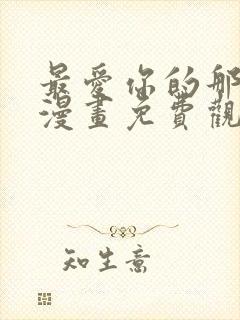 最愛你的那
漫畫免費觀
知生意